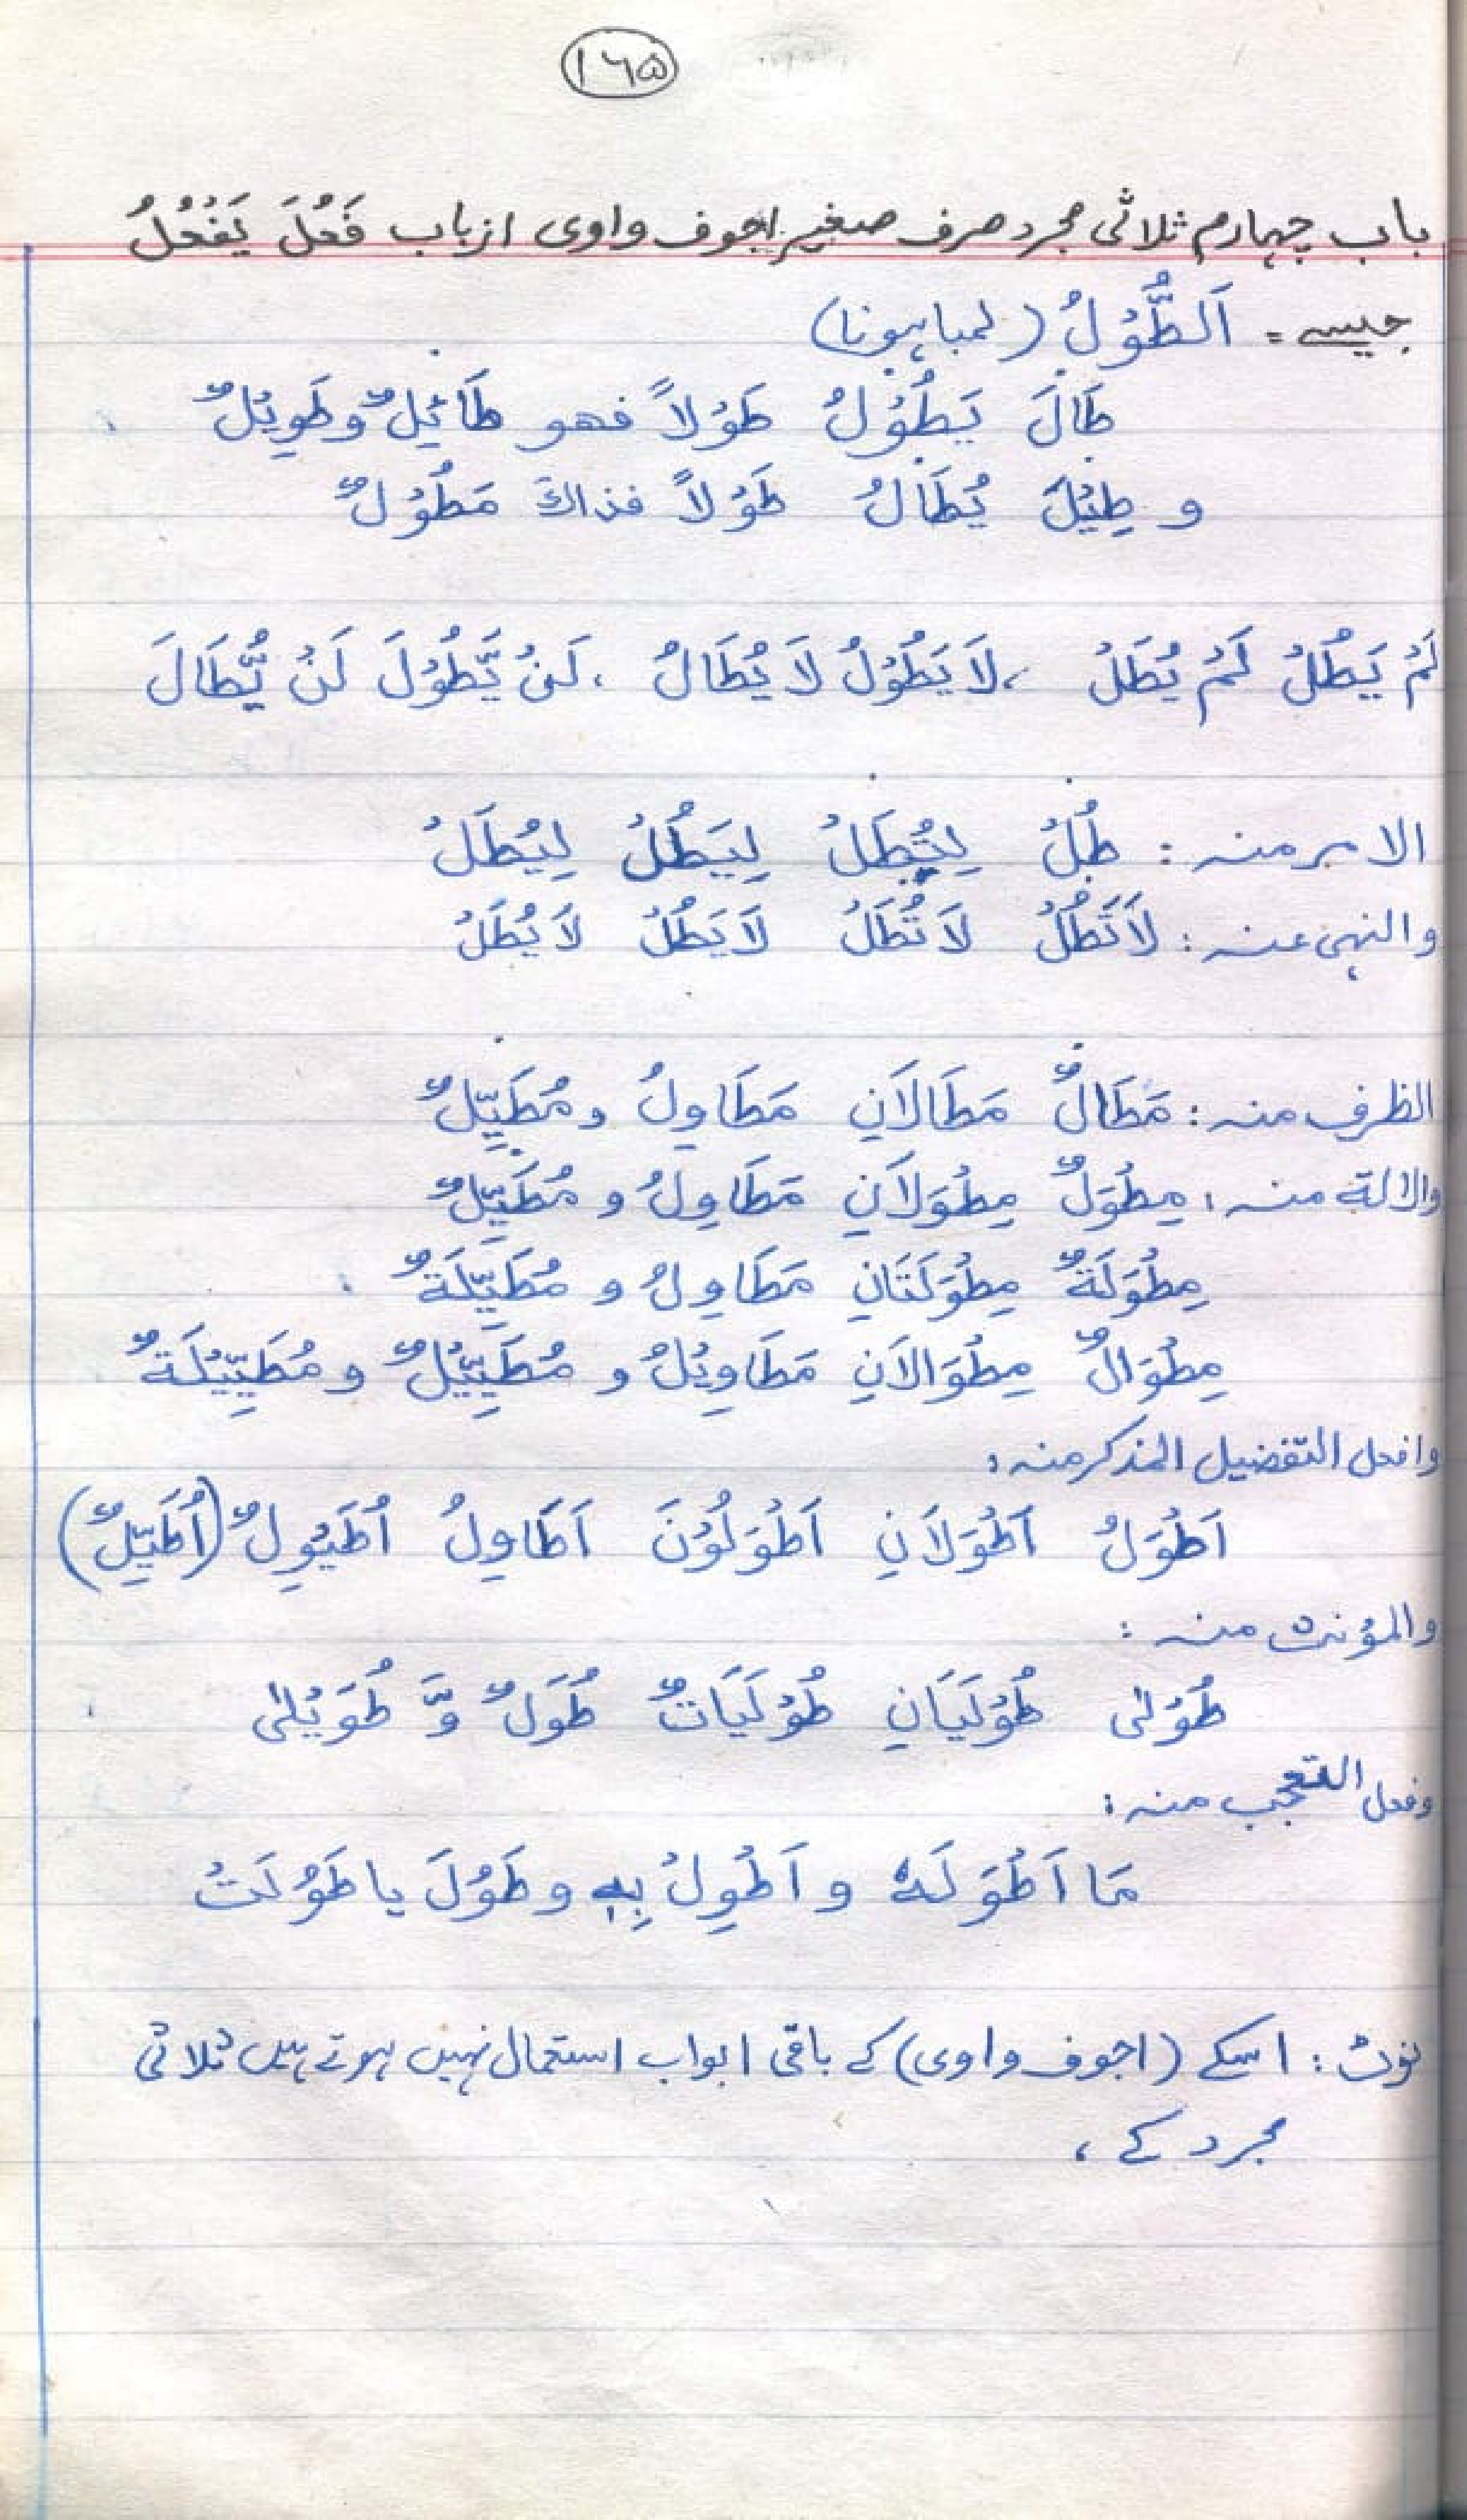 ۱۶۵
باب چہارم ثلاثی مجرد صرف صغیر اجوف واوی از باب فَعُلَ يَفْعُلُ
جیسے = اَلطُّوْلُ (لمبا ہونا)
طَالَ يَطُوْلُ طَوْلاً فهو طَائِلٌ وطَوِيْلٌ
و طِيْلَ يُطَالُ طَوْلاً فذاكَ مَطُوْلٌ
لَمْ يَطُلْ لَمْ يُطَلْ ، لَا يَطُوْلُ لَا يُطَالُ ، لَنْ يَّطُوْلَ لَنْ يُّطَالَ
الامر منه : طُلْ لِتُطَلْ لِيَطُلْ لِيُطَلْ
والنهى عنه : لَا تَطُلْ لَا تُطَلْ لَا يَطُلْ لَا يُطَلْ
الظرف منه : مَطَالٌ مَطَالَانِ مَطَاوِلُ و مُطَيِّلٌ
والالة منه : مِطْوَلٌ مِطْوَلَانِ مَطَاوِلُ و مُطَيِّلٌ
مِطْوَلَةٌ مِطْوَلَتَانِ مَطَاوِلُ و مُطَيِّلَةٌ
مِطْوَالٌ مِطْوَالَانِ مَطَاوِيْلُ و مُطَيِّيْلٌ و مُطَيِّيْلَةٌ
وافعل التفضيل المذكر منه :
اَطْوَلُ اَطْوَلَانِ اَطْوَلُوْنَ اَطَاوِلُ اُطَيْوِلٌ (اُطَيِّلٌ)
والمؤنث منه :
طُوْلىٰ طُوْلَيَانِ طُوْلَيَاتٌ طُوَلٌ وَّ طُوَيْلىٰ
وفعل التعجب منه :
مَا اَطْوَلَهٗ و اَطْوِلْ بِهٖ و طَوُلَ يا طَوُلَتْ
نوٹ : اسکے (اجوف واوی) کے باقی ابواب استعمال نہیں ہوتے ہیں ثلاثی
مجرد کے ،